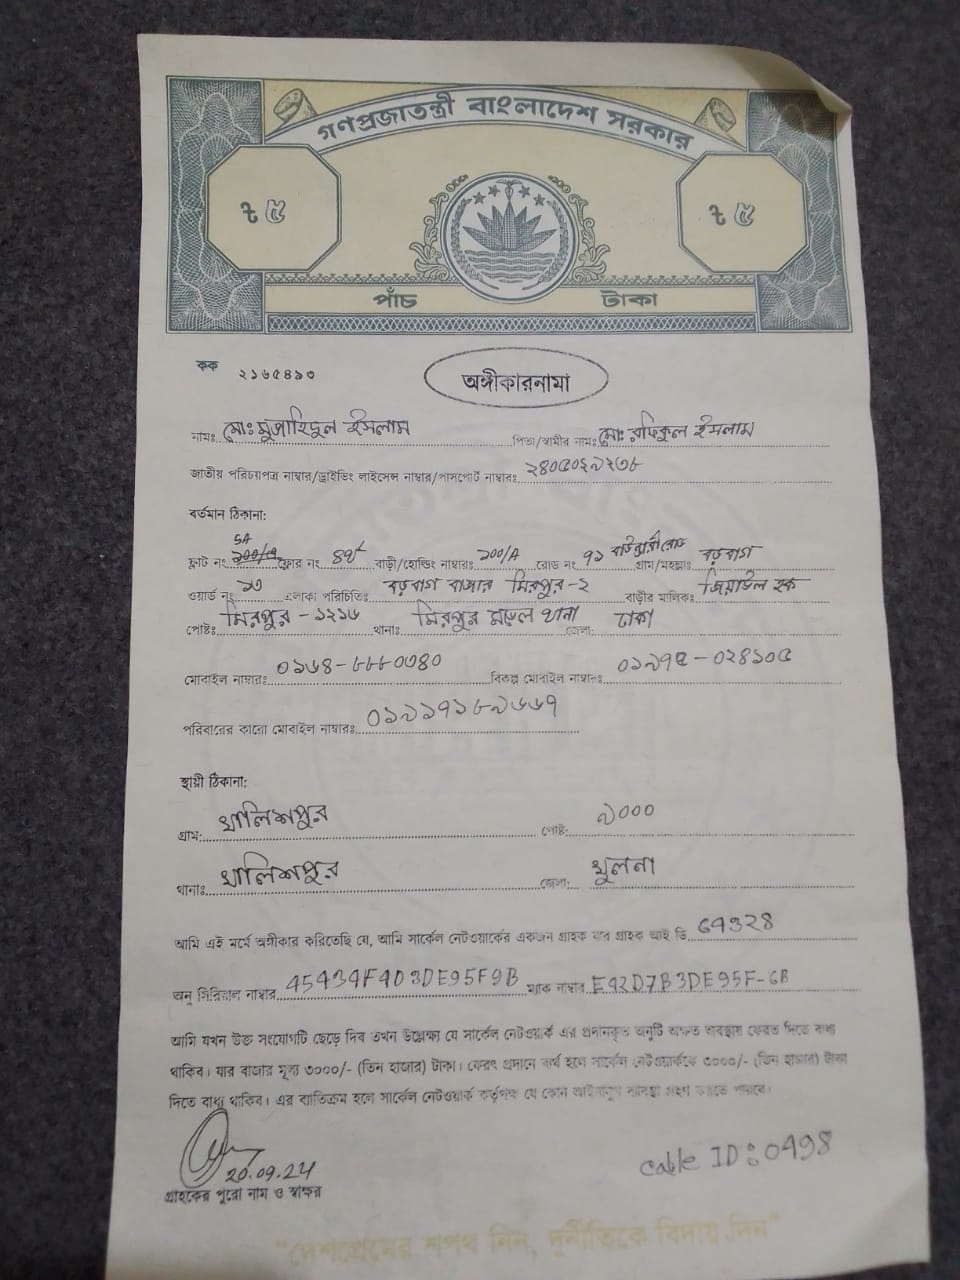 গণপ্রজাতন্ত্রী বাংলাদেশ সরকার
৳ ৫ ৳ ৫
পাঁচ টাকা
কক ২১৬৫৪৯৩
অঙ্গীকারনামা
নামঃ মোঃ মুজাহিদুল ইসলাম পিতা/স্বামীর নামঃ মোঃ রফিকুল ইসলাম
জাতীয় পরিচয়পত্র নাম্বার/ড্রাইভিং লাইসেন্স নাম্বার/পাসপোর্ট নাম্বারঃ
বর্তমান ঠিকানা:
5A
ফ্লাট নং ফ্লোর নং বাড়ী/হোল্ডিং নাম্বারঃ ১০০/A রোড নং গ্রাম/মহল্লাঃ বড়বাগ
ওয়ার্ড নং ১৩ এলাকা পরিচিতিঃ বড়বাগ বাজার মিরপুর-২ বাড়ীর মালিকঃ জিয়াউল হক
পোষ্টঃ মিরপুর - ১২১৬ থানাঃ মিরপুর মডেল থানা জেলা: ঢাকা
মোবাইল নাম্বারঃ বিকল্প মোবাইল নাম্বারঃ
পরিবারের কারো মোবাইল নাম্বারঃ
স্থায়ী ঠিকানা:
গ্রাম: খালিশপুর পোষ্ট: ৯০০০
থানাঃ খালিশপুর জেলা: খুলনা
আমি এই মর্মে অঙ্গীকার করিতেছি যে, আমি সার্কেল নেটওয়ার্কের একজন গ্রাহক যার গ্রাহক আই ডি
অনু সিরিয়াল নাম্বার ম্যাক নাম্বার
আমি যখন উক্ত সংযোগটি ছেড়ে দিব তখন উল্লেক্ষ্য যে সার্কেল নেটওয়ার্ক এর প্রদানকৃত অনুটি অক্ষত অবস্থায় ফেরত দিতে বাধ্য
থাকিব। যার বাজার মূল্য ৩০০০/- (তিন হাজার) টাকা। ফেরৎ প্রদানে ব্যর্থ হলে সার্কেল নেটওয়ার্ককে ৩০০০/- (তিন হাজার) টাকা
দিতে বাধ্য থাকিব। এর ব্যতিক্রম হলে সার্কেল নেটওয়ার্ক কর্তৃপক্ষ যে কোন আইনানুগ ব্যবস্থা গ্রহণ করতে পারবে।
20.09.24
Cable ID: 0498
গ্রাহকের পুরো নাম ও স্বাক্ষর
"দেশপ্রেমের শপথ নিন, দুর্নীতিকে বিদায় দিন"